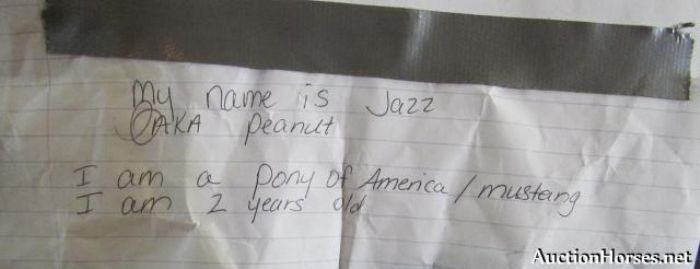 My name is Jazz
AKA peanut
I am a Pony of America / mustang
I am 2 years old
AuctionHorses.net